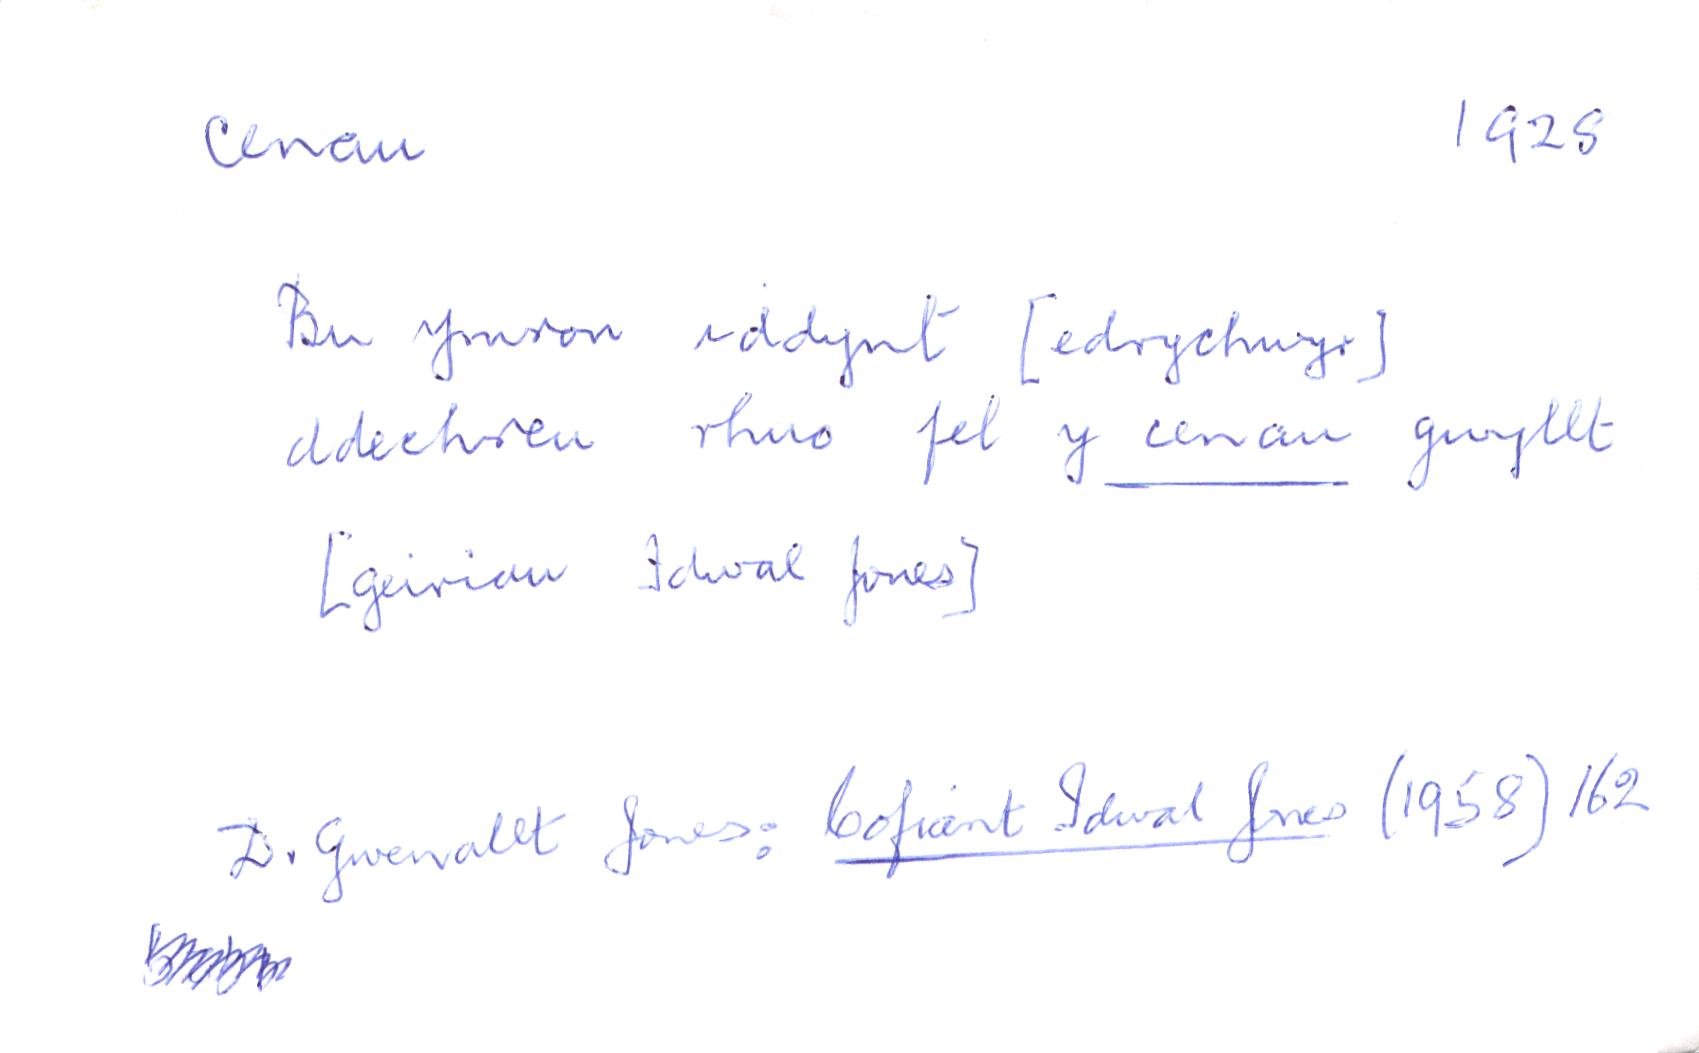 cenau 1928
Bu ymron iddynt [edrychwyr]
ddechreu rhuo fel y cenau gwyllt
[geiriau Idwal Jones]
D. Gwenallt Jones: Cofiant Idwal Jones (1958) 162